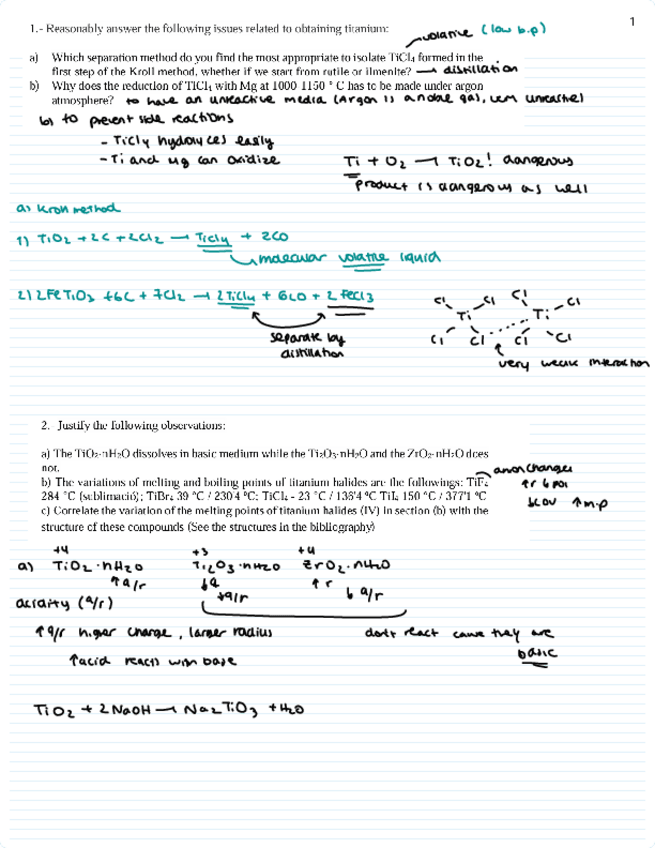 1
1.- Reasonably answer the following issues related to obtaining titanium:
volative (low b.p)
a) Which separation method do you find the most appropriate to isolate TiCl₄ formed in the
first step of the Kroll method, whether if we start from rutile or ilmenite? → distillation
b) Why does the reduction of TiCl₄ with Mg at 1000-1150 ° C has to be made under argon
atmosphere? to have an unreactive media (Argon is a noble gas, very unreactive)
b) to prevent side reactions
- TiCl4 hydrolyces easily
- Ti and Mg can oxidize
Ti + O2 → TiO2! dangerous
product is dangerous as well
a) Kroll method
1) TiO2 + 2C + 2Cl2 → TiCl4 + 2CO
molecular volatile liquid
2) 2FeTiO3 + 6C + 7Cl2 → 2TiCl4 + 6CO + 2FeCl3
separate by
distillation
Cl Cl Cl Cl
Ti Ti
Cl Cl Cl Cl
very weak interaction
2. Justify the following observations:
a) The TiO₂·nH₂O dissolves in basic medium while the Ti₂O₃·nH₂O and the ZrO₂·nH₂O does
not.
anion changes
b) The variations of melting and boiling points of titanium halides are the followings: TiF₄
284 °C (sublimació); TiBr₄ 39 °C / 230'4 °C; TiCl₄ - 23 °C / 136'4 °C TiI₄ 150 °C / 377'1 °C
↑r ↓pol
↓cov ↑m.p
c) Correlate the variation of the melting points of titanium halides (IV) in section (b) with the
structure of these compounds (See the structures in the bibliography)
+4 +3 +4
a) TiO2·nH2O Ti2O3·nH2O ZrO2·nH2O
↑q/r ↓q ↑r
↓q/r ↓q/r
acidity (q/r)
↑q/r higher charge, larger radius
don't react cause they are
basic
↑acid reacts with base
TiO2 + 2NaOH → Na2TiO3 + H2O